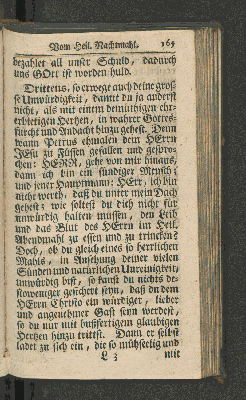 Vom Heil. Nachtmahl. 165
bezahlet all unser Schuld, dadurch
uns GOtt ist worden huld.
Drittens, so erwege auch deine gros-
se Unwürdigkeit, damit du ja anderst
nicht, als mit einem demüthigen ehr-
erbietigen Hertzen, in wahrer Gottes-
furcht und Andacht hinzu gehest. Denn
wann Petrus ehmalen dem HErrn
JEsu zu Füssen gefallen und gespro-
chen: HERR, gehe von mir hinaus,
dann ich bin ein sündiger Mensch;
und jener Hauptmann: HErr, ich bin
nicht werth, daß du unter mein Dach
gehest; wie soltest du dich nicht für
unwürdig halten müssen, den Leib
und das Blut des HErrn im Heil.
Abendmahl zu essen und zu trincken?
Doch, ob du gleich eines so herrlichen
Mahls, in Ansehung deiner vielen
Sünden und natürlichen Unreinigkeit,
unwürdig bist, so kanst du nichts de-
stoweniger gesichert seyn, daß du dem
HErrn Christo ein würdiger, lieber
und angenehmer Gast seyn werdest,
so du nur mit bußfertigem glaubigen
Hertzen hinzu trittst. Dann er selbst
ladet zu sich ein, die so mühselig und
L 3 mit